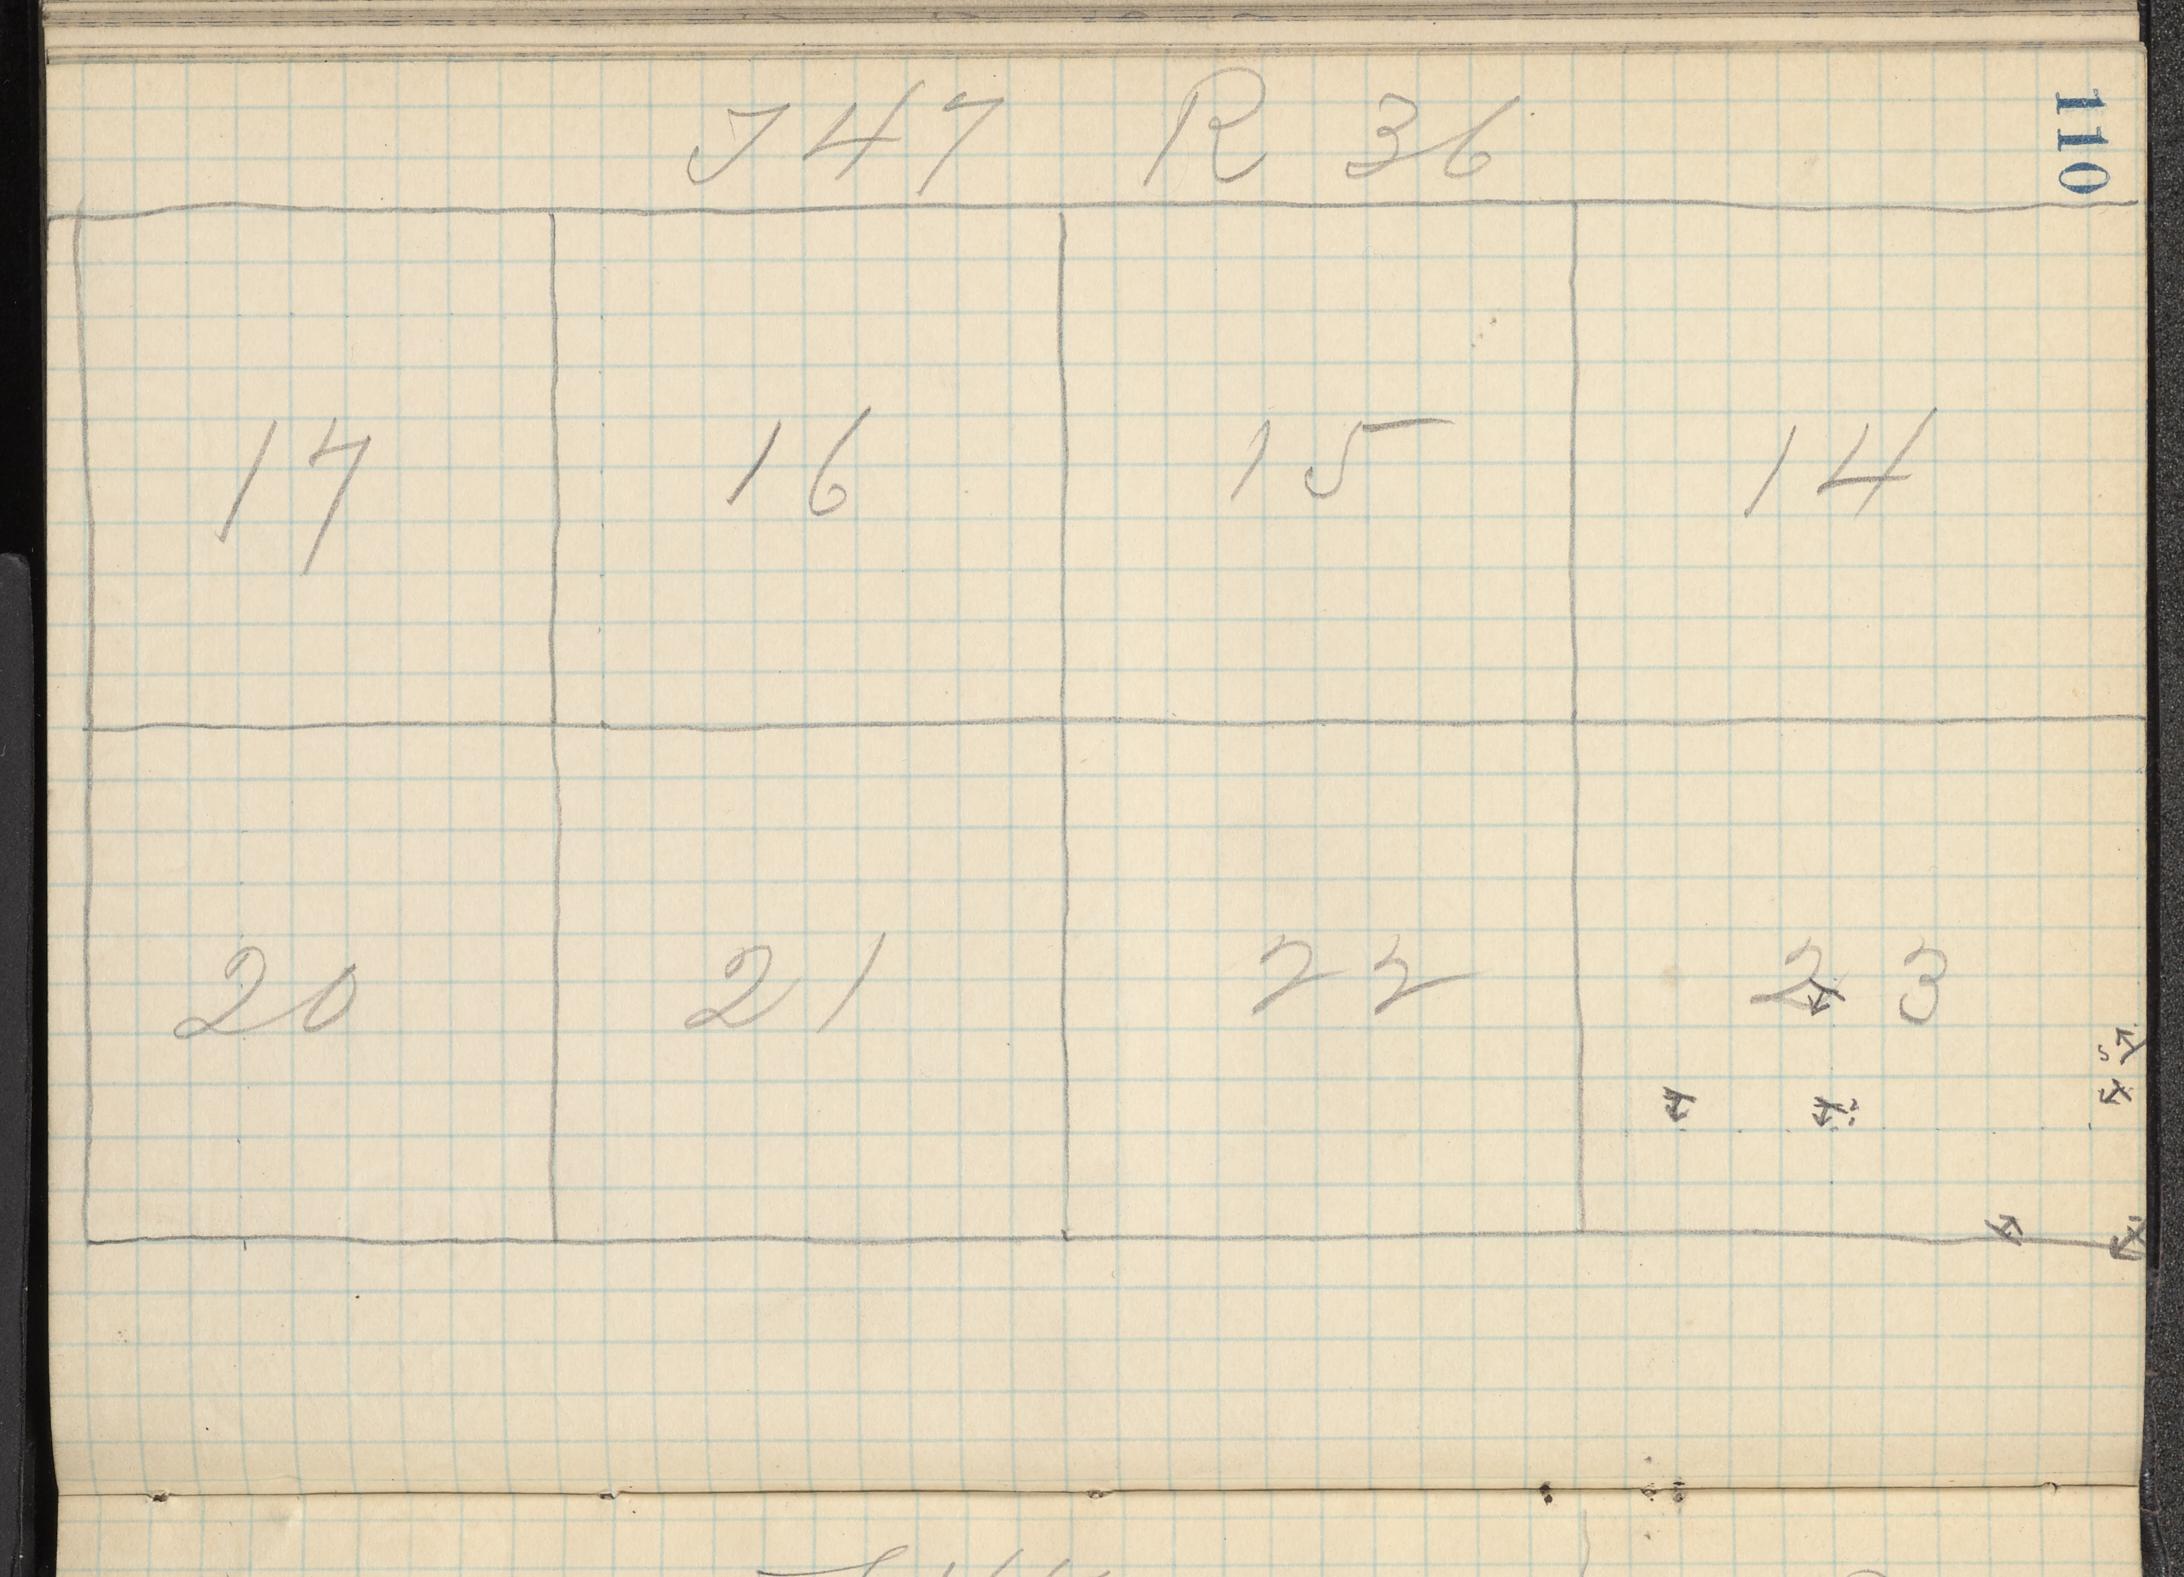 110
T 47 R 36
17 16 15 14
20 21 22 23